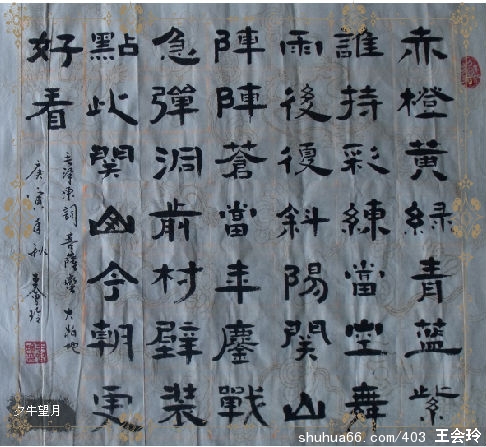 赤橙黄緑青蓝紫
誰持彩練當空舞
雨後復斜陽関山
陣陣蒼當年鏖戰
急彈洞前村壁装
點此関山今朝更
好看
毛澤東詞菩薩蠻大柏地
庚寅秋王會玲
夕牛望月
shuhua66.com/403 王会玲